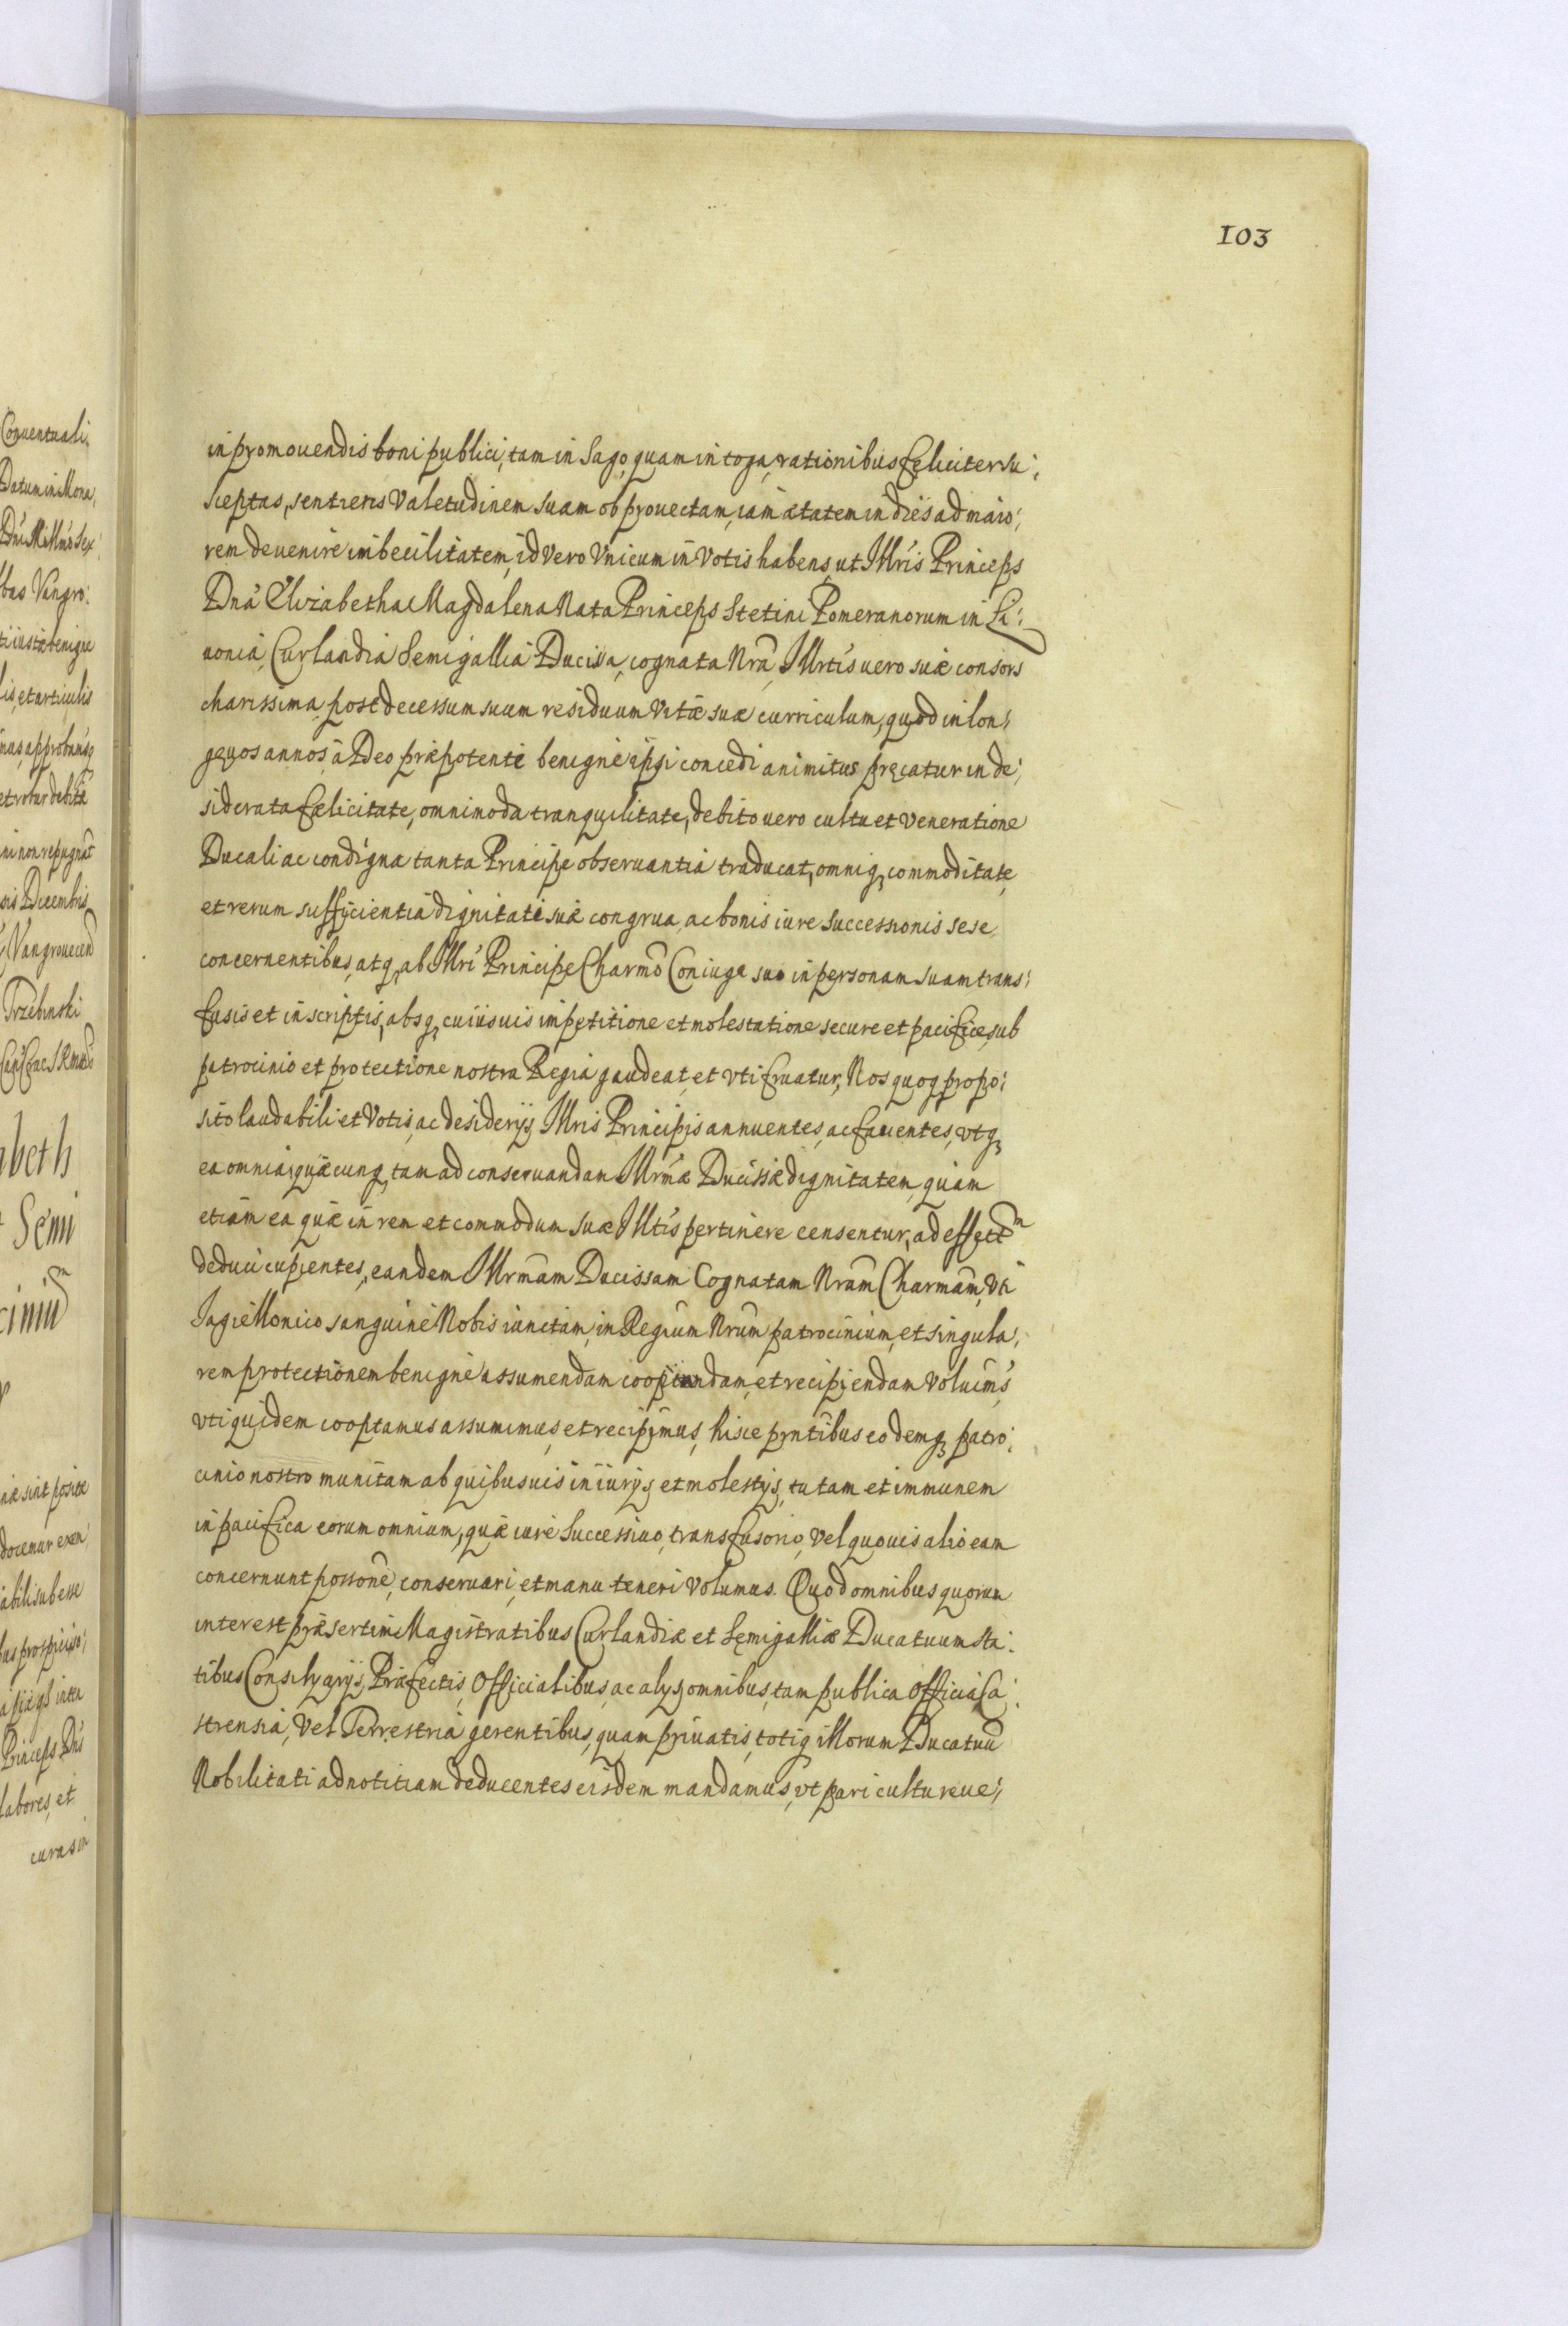 103
in promouendis boni publici, tam in Sago, quam in toga, rationibus feliciter su:
sceptas, sentiens Valetudinem suam ob prouectam, iam ætatem in dies ad maio:
rem deuenire imbecilitatem, id vero Vnicum in Votis habens, ut Illris Princeps
Dná Elizabetha Magdalena Nata Princeps Stetini Pomeranorum in Li:
uonia, Curlandia Semigallia Ducissa, cognata Nrã, Illrtis uero suæ consors
charissima, post decessum suum residuum Vitæ suæ curriculum, quod in lon:
gęuos annos, à Deo præpotente benigne ipsi concedi animitus pręcatur in de:
siderata fælicitate, omnimoda tranquilitate, debito uero cultu et Veneratione
Ducali ac condigna tanta Principe obseruantia traducat, omniq commoditate,
et rerum suffycientia dignitati suæ congrua, ac bonis iure Successionis sese
concernentibus, atq ab Illri Principe Charmõ Coniuge suo in personam suam trans:
fusis et inscriptis, absq cuiusuis impetitione et molestatione secure et pacifice, sub
patrocinio et protectione nostra Regia gaudeat, et vti fruatur, Nos quoq propo:
sito laudabili et Votis, ac desiderijs Illris Principis annuentes, ac fauentes, vtq
ea omnia, quæcunq, tam ad conseruandam Illrmæ Ducissæ dignitatem, quam
etiam ea quæ in rem et commodum suæ Illtis pertinere censentur, ad effectm
deduci cupientes, eandem Illrmam Ducissam Cognatam Nram Charmam, Vti
Jagiellonico sanguine Nobis iunctam, in Regium Nrum patrocinium, et singula:
rem protectionem benigne assumendam cooptandam, et recipiendam Voluims,
vti quidem cooptamus assumimus, et recipimus, hisce pntibus eodemq patro:
cinio nostro munitam ab quibusuis iniurys et molestys, tutam et immunem
in pacifica eorum omnium, quæ iure Successiuo, transfusorio, Vel quouis alio eam
concernunt possone, conseruari, et manu teneri Volumus. Quod omnibus quorum
interest præsertim Magistratibus Curlandiæ et Semigalliæ Ducatuum sta:
tibus Consilyarijs, Præfectis, Officialibus, ac alys omnibus, tam publica Officia Ca:
strensia, Vel Terrestria gerentibus, quam priuatis, totiq illorum Ducatuũ
Nobilitati ad notitiam deducentes eisdem mandamus, vt pari cultu reue: